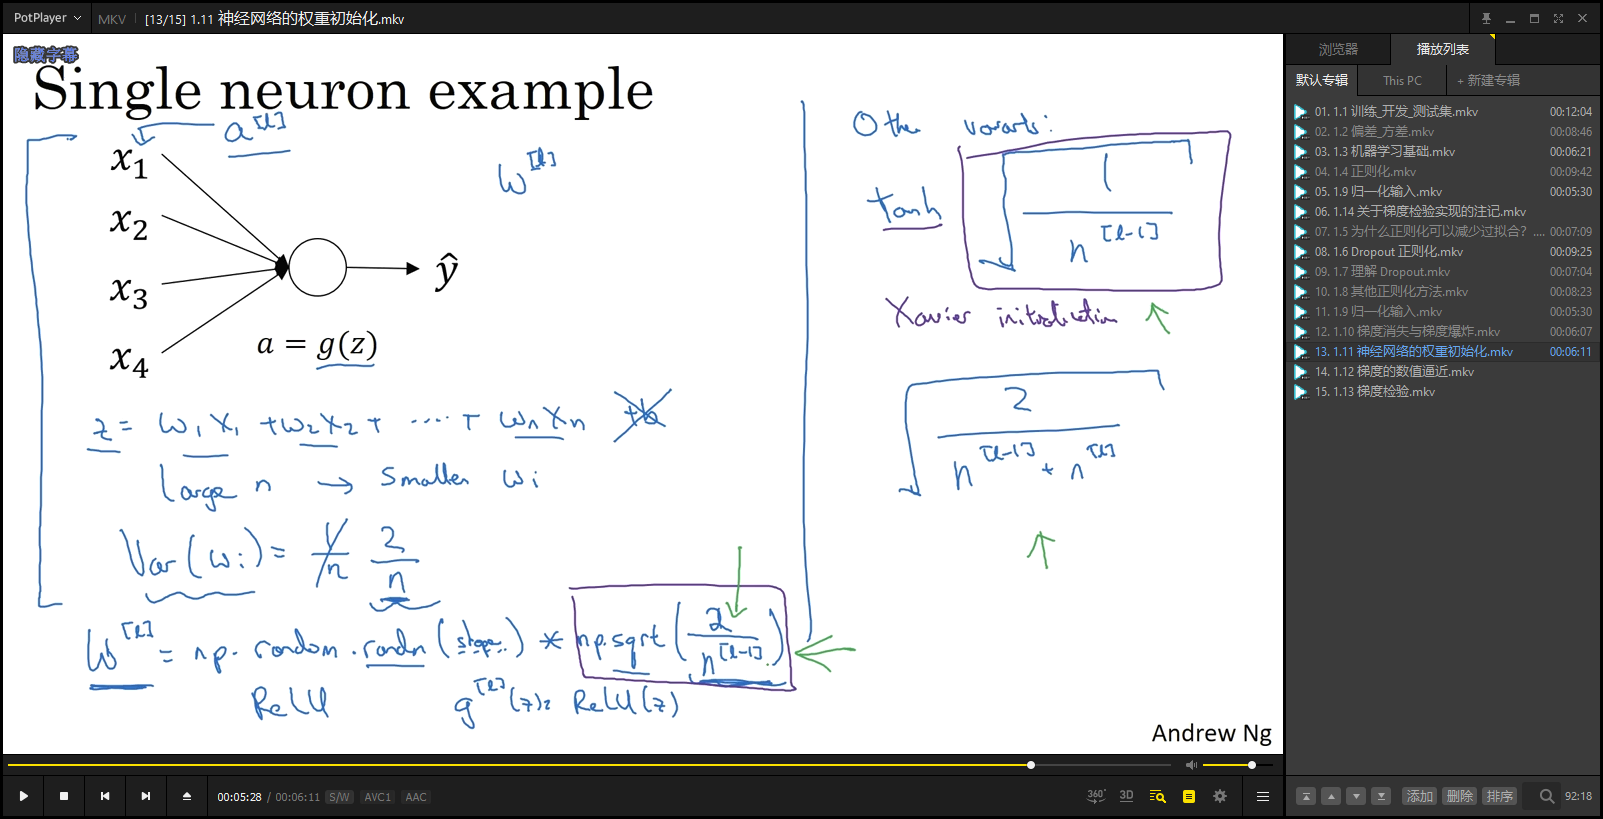 PotPlayer MKV [13/15] 1.11 神经网络的权重初始化.mkv
隐藏字幕
Single neuron example
a^[l]
x₁
x₂
x₃
x₄
ŷ
a = g(z)
W^[l]
z = w₁x₁ + w₂x₂ + ····· + wₙxₙ +b
Large n → Smaller wᵢ
Var(wᵢ) = 1/n 2/n
W^[l] = np.random.randn(shape) * np.sqrt(2/n^[l-1])
ReLU g^[l](z) = ReLU(z)
Other variants:
tanh √(1/n^[l-1])
Xavier initialization
√(2/(n^[l-1] * n^[l]))
Andrew Ng
00:05:28 / 00:06:11 S/W AVC1 AAC
360° 3D
浏览器 播放列表
默认专辑 This PC + 新建专辑
01. 1.1 训练_开发_测试集.mkv 00:12:04
02. 1.2 偏差_方差.mkv 00:08:46
03. 1.3 机器学习基础.mkv 00:06:21
04. 1.4 正则化.mkv 00:09:42
05. 1.9 归一化输入.mkv 00:05:30
06. 1.14 关于梯度检验实现的注记.mkv
07. 1.5 为什么正则化可以减少过拟合? .... 00:07:09
08. 1.6 Dropout 正则化.mkv 00:09:25
09. 1.7 理解 Dropout.mkv 00:07:04
10. 1.8 其他正则化方法.mkv 00:08:23
11. 1.9 归一化输入.mkv 00:05:30
12. 1.10 梯度消失与梯度爆炸.mkv 00:06:07
13. 1.11 神经网络的权重初始化.mkv 00:06:11
14. 1.12 梯度的数值逼近.mkv
15. 1.13 梯度检验.mkv
添加 删除 排序 92:18